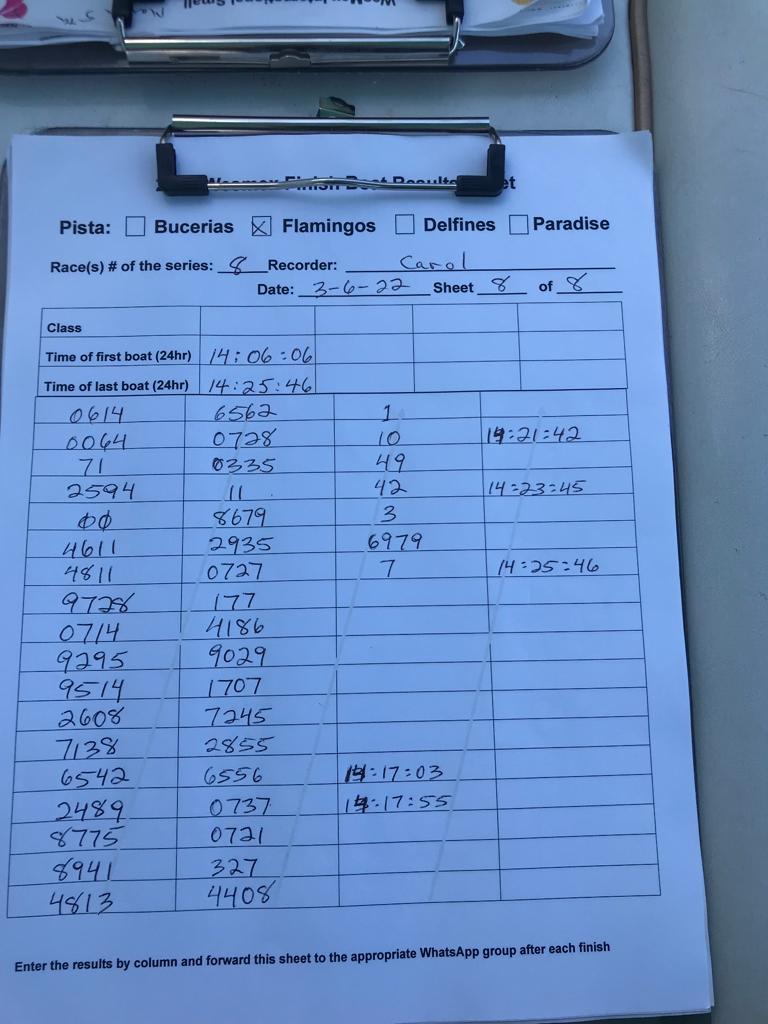 Finish Boat Results Sheet
Pista: ☐ Bucerias ☒ Flamingos ☐ Delfines ☐ Paradise
Race(s) # of the series: 8 Recorder: Carol
Date: 3-6-22 Sheet 8 of 8
Class
Time of first boat (24hr) 14:06:06
Time of last boat (24hr) 14:25:46
0614 6562 1
0064 0728 10 14:21:42
71 0335 49
2594 11 42 14:23:45
00 8679 3
4611 2935 6979
4811 0727 7 14:25:46
9728 177
0714 4186
9295 9029
9514 1707
2608 7245
7138 2855
6542 6556 14:17:03
2489 0737 14:17:55
8775 0721
8941 327
4813 4408
Enter the results by column and forward this sheet to the appropriate WhatsApp group after each finish